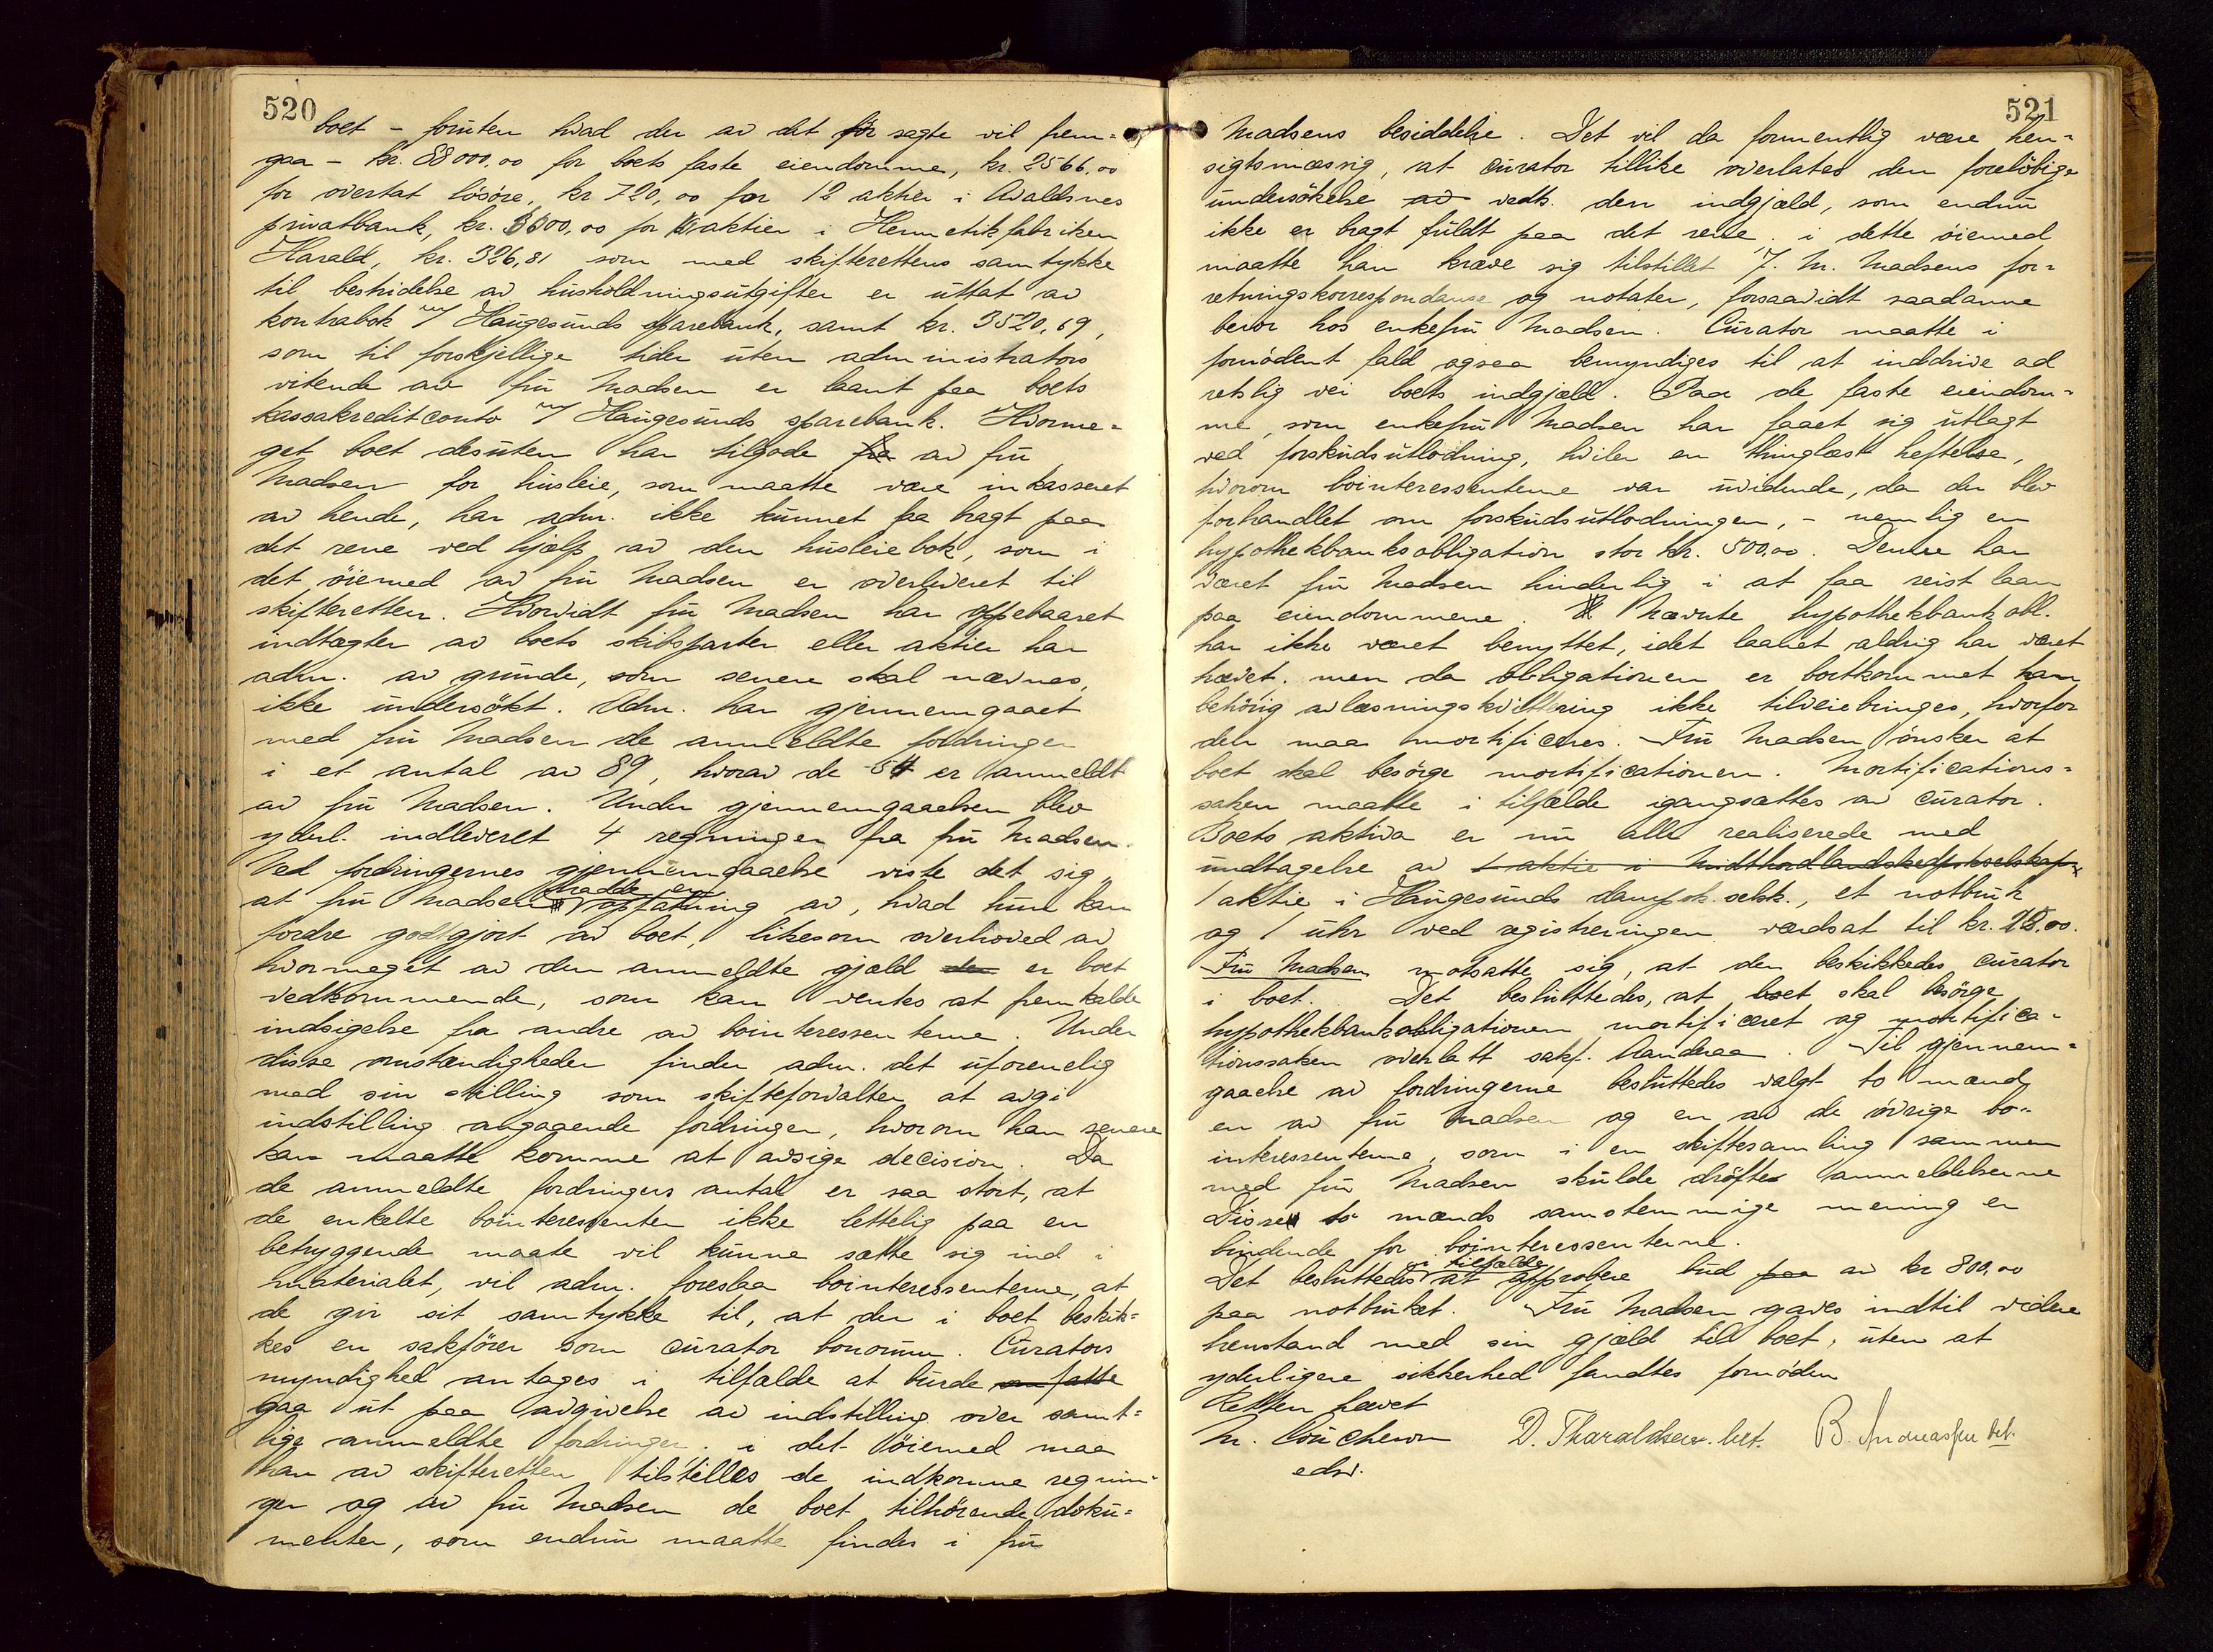 520
boet - foruten hvad der av det før sagte vil frem-
gaa - kr. 88000,00 for boets faste eiendomme, kr. 2566,00
for overtat løsøre, kr 720,00 for 12 aktier i Avaldsnes
privatbank, kr. 3600,00 for aktier i Hermetikfabriken
Harald, kr. 326,81 som med skifterettens samtykke
til bestridelse av husholdningsutgifter er uttat av
kontrabok m/ Haugesunds sparebank, samt kr. 3520,69,
som til forskjellige tider uten administrators
vitende av fru Madsen er laant paa boets
kassakreditconto m/ Haugesunds sparebank. Hvorme-
get boet desuten har tilgode fra av fru
Madsen for husleie, som maatte være inkasseret
av hende, har adm. ikke kunnet faa bragt paa
det rene ved hjælp av den husleiebok, som i
det øiemed av fru Madsen er overleveret til
skifteretten. Hvorvidt fru Madsen har oppebaaret
indtægter av boets skibsparter eller aktier har
adm. av grunde, som senere skal nævnes,
ikke undersökt. Adm. har gjennemgaaet
med fru Madsen de anmeldte fordringer
i et antal av 89, hvorav de 54 er anmeldt
av fru Madsen. Under gjennemgaaelsen blev
yderl. indleveret 4 regninger fra fru Madsen.
Ved fordringernes gjennemgaaelse viste det sig,
at fru Madsen hadde en opfatning av, hvad hun kan
fordre godtgjort av boet, likesom overhoved av
hvormeget av den anmeldte gjæld den er boet
vedkommende, som kan ventes at fremkalde
indsigelse fra andre av bointeressenterne. Under
disse omstændigheder finder adm. det uforenelig
med sin stilling som skifteforvalter at avgi
indstilling angaaende fordringer, hvorom han senere
kan maatte komme at avsige decision. Da
de anmeldte fordringers antal er saa stort, at
de enkelte bointeressenter ikke lettelig paa en
betryggende maate vil kunne sætte sig ind i
materialet, vil adm. foreslaa bointeressenterne, at
de gir sit samtykke til, at der i boet beskik-
kes en sakfører som curator bonorum. Curators
myndighed antages i tilfælde at burde omfatte
gaa ut paa avgivelse av indstilling over samt-
lige anmeldte fordringer. i det øiemed maa
han av skifteretten tilstilles de indkomne regnin-
ger og av fru Madsen de boet tilhörende doku-
menter, som endnu maatte findes i fru
521
Madsens besiddelse. Det vil da formentlig være hen-
sigtsmæssig, at curator tillike overlates den foreløbige
undersökelse av vedk. den indgjæld, som endnu
ikke er bragt fuldt paa det rene. i dette øiemed
maatte han kræve sig tilstillet J. M. Madsens for-
retningskorrespondanse og notater, forsaavidt saadanne
beror hos enkefru Madsen. Curator maatte i
fornødent fald ogsaa bemyndiges til at inddrive ad
retslig vei boets indgjæld. Paa de faste eiendom-
me, som enkefru Madsen har faaet sig utlagt
ved forskudsutlodning, hviler en thinglæst heftelse,
hvorom bointeressenterne var uvidende, da der blev
forhandlet om forskudsutlodningen, - nemlig en
hypothekbanksobligation stor kr. 500,00. Denne har
været fru Madsen hinderlig i at faa reist laan
paa eiendommene. Nævnte hypothekbankobl.
har ikke været benyttet, idet laanet aldrig har været
hævet. men da obligationen er bortkommet kan
behörig avlæsningskvittering ikke tilveiebringes, hvorfor
den maa mortificeres. Fru Madsen ønsker at
boet skal besörge mortificationen. Mortifications-
saken maatte i tilfælde igangsættes av curator.
Boets aktiva er nu alle realiserede med
undtagelse av 1 aktie i Midthordlandskedpskselskap
1 aktie i Haugesunds dampsk.selsk., et notbruk
og 1 uhr ved registreringen værdsat til kr. 18,00.
Fru Madsen motsatte sig, at der beskikkedes curator
i boet. Det besluttedes, at boet skal besörge
hypothekbankobligationen mortificeret og mortifica-
tionssaken overlatt sakf. Aandraa. Til gjennem-
gaaelse av fordringerne besluttedes valgt to mænd
en av fru Madsen og en av de övrige bo-
interessenterne, som i en skiftesamling sammen
med fru Madsen skulde dröfte anmeldelserne
Disse to mænds samstemmige mening er
bindende for bointeressenterne.
Det besluttedes i tilfælde at approbere bud paa av kr 800,00
paa notbruket. Fru Madsen gaves indtil videre
henstand med sin gjæld til boet, uten at
yderligere sikkerhed fandtes fornøden
Retten hævet
M. Coucheron D. Tharaldsen. bet. B. Andreassen bet.
edsv.